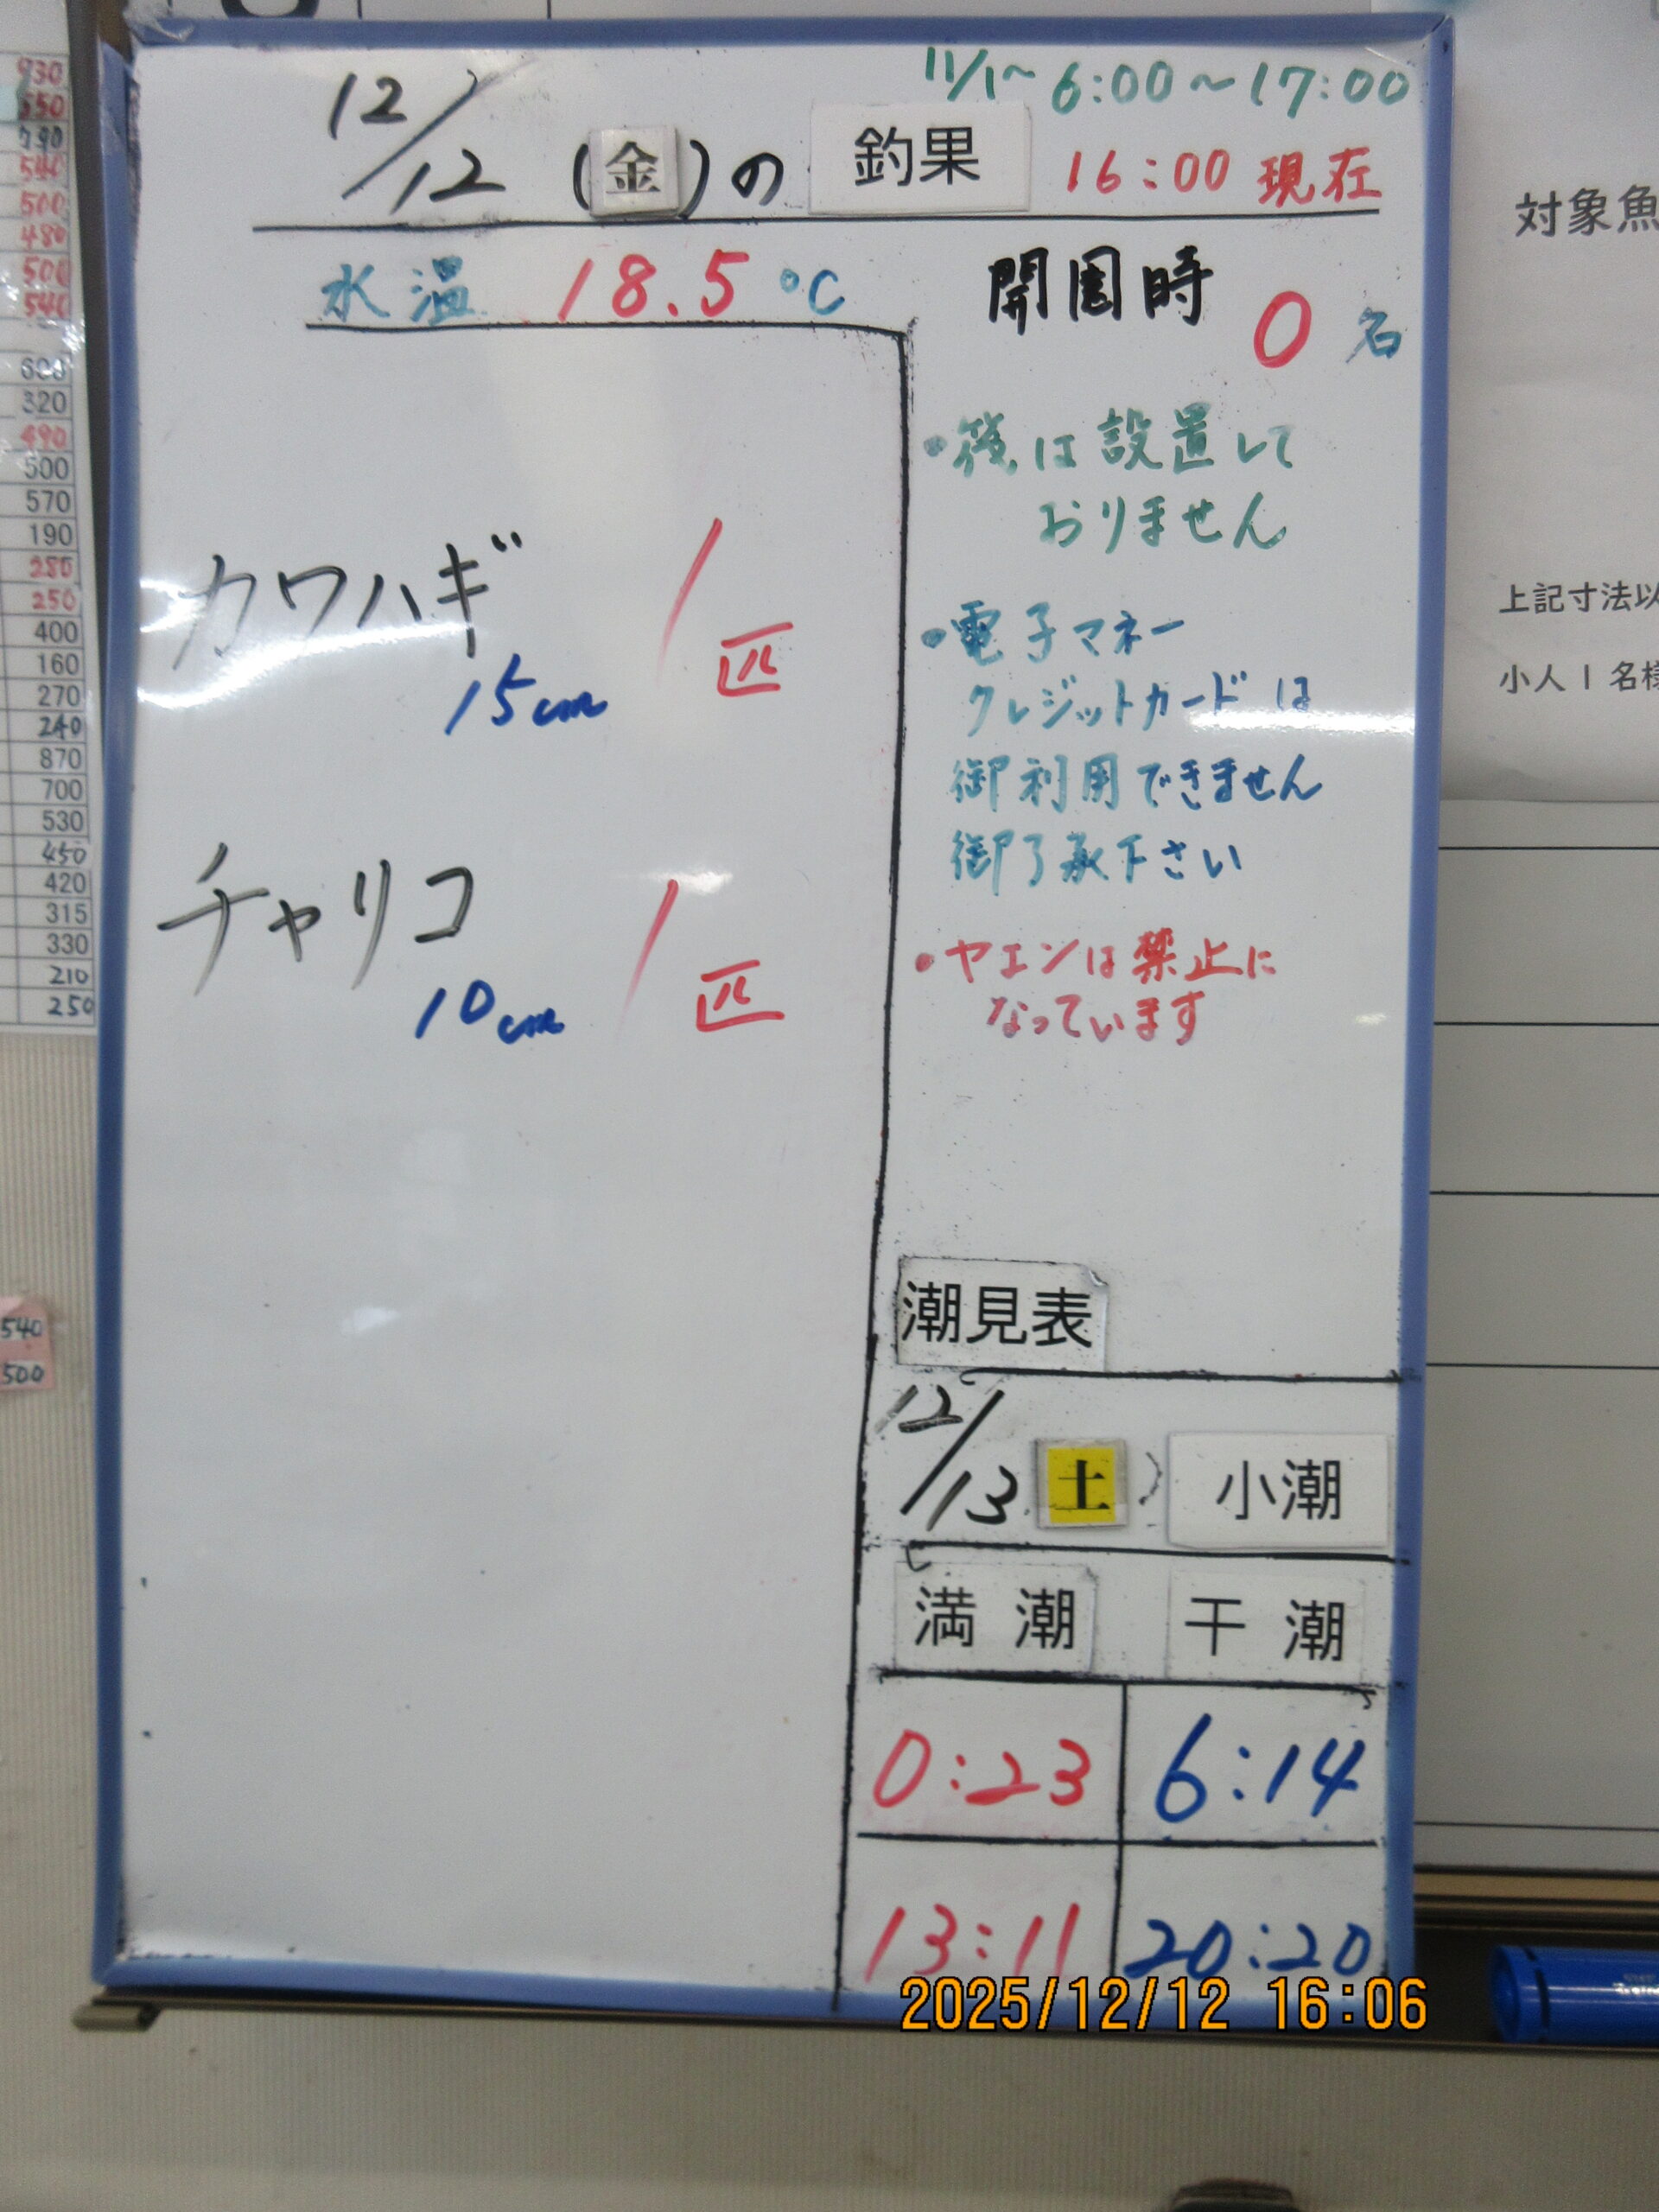 11/1~ 6:00~17:00
12/12 (金)の 釣果 16:00 現在
水温 18.5 ℃
開園時 0 名
カワハギ 1匹
15cm
チャリコ 1匹
10cm
・筏は設置して
おりません
・電子マネー
クレジットカードは
御利用できません
御了承下さい
・ヤエンは禁止に
なっています
潮見表
12/13 土) 小潮
満潮 干潮
0:23 6:14
13:11 20:20
2025/12/12 16:06
対象魚
上記寸法以
小人1名様
930
550
790
540
500
480
500
540
600
320
490
500
570
190
280
250
400
160
270
240
870
700
530
450
420
315
330
210
250
540
500